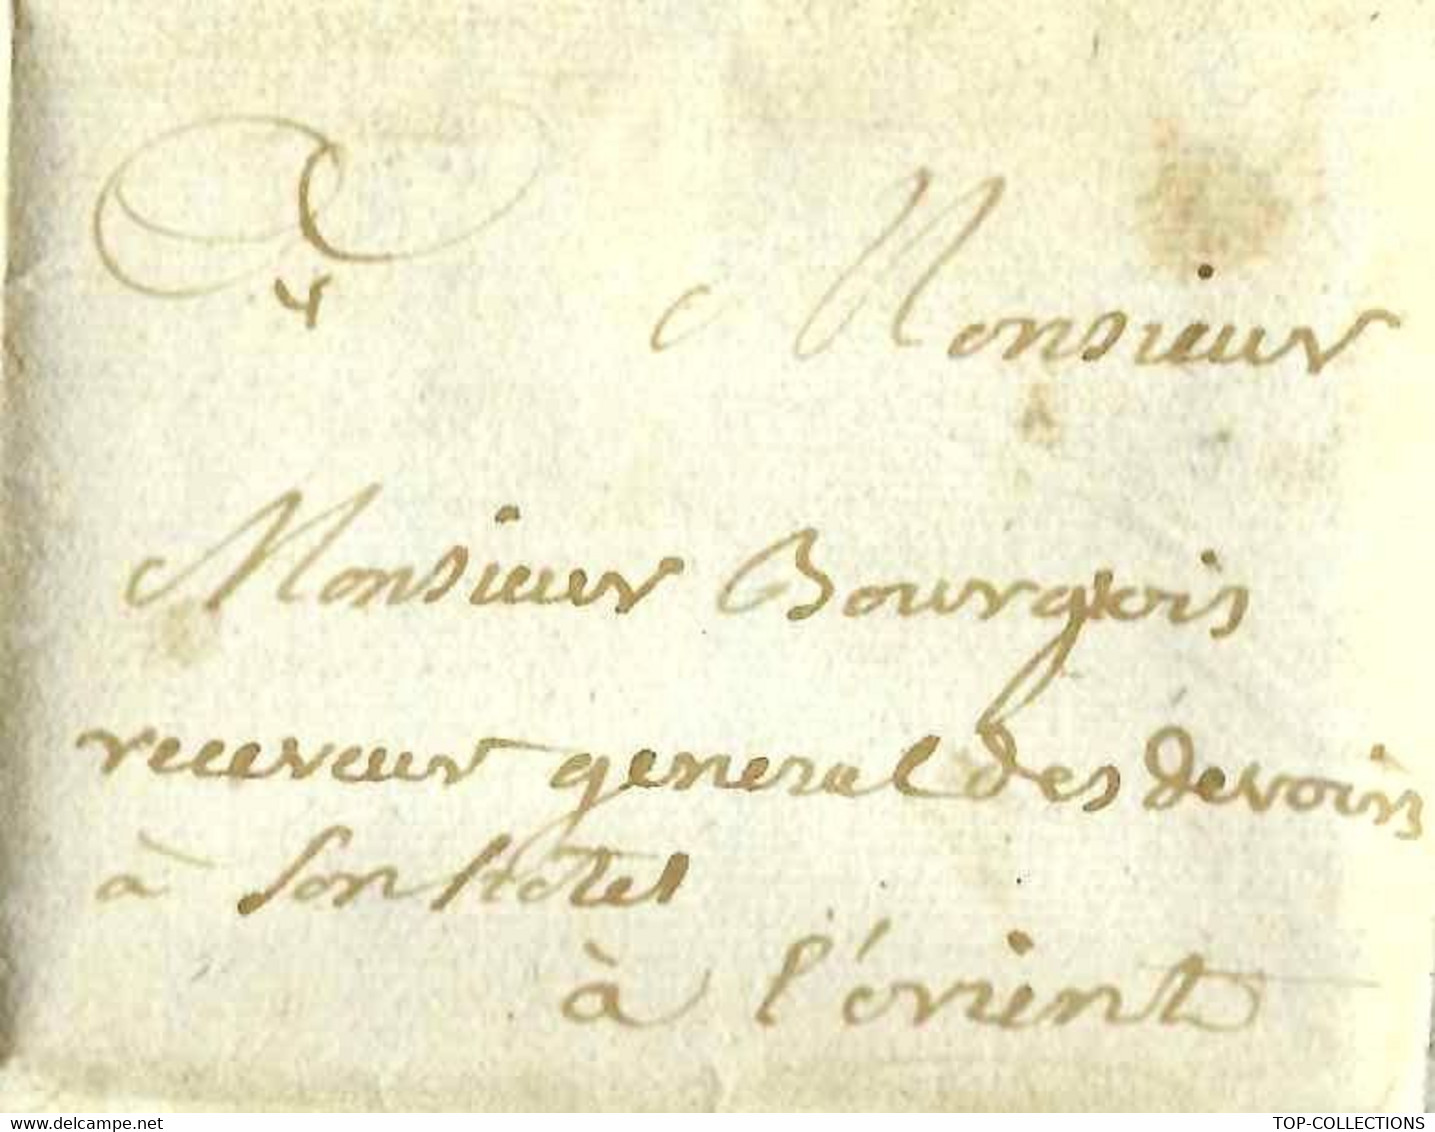 4
Monsieur
Monsieur Bourgeois
receveur general des devoirs
à son hotel
à l'orient
www.delcampe.net
TOP-COLLECTIONS